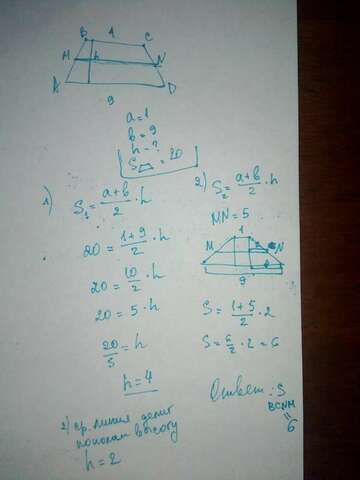 B 1 C
M h N
A D
9
a=1
b=9
h-?
S = 20
1) S₁ = a+b/2 · h
20 = 1+9/2 · h
20 = 10/2 · h
20 = 5 · h
20/5 = h
h=4
2) ср. линия делит
пополам высоту
h=2
2) S₂ = a+b/2 · h
MN=5
1
M 2 N
9
S = 1+5/2 · 2
S = 6/2 · 2 = 6
Ответ: S
BCNM
=
6